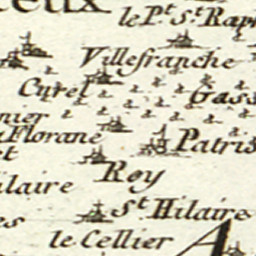 le P.t S.t Rap
Villefranche
Curel
Gass
nier
Florane
Patris
et
Roy
laire
S.t Hilaire
es
le Cellier
A